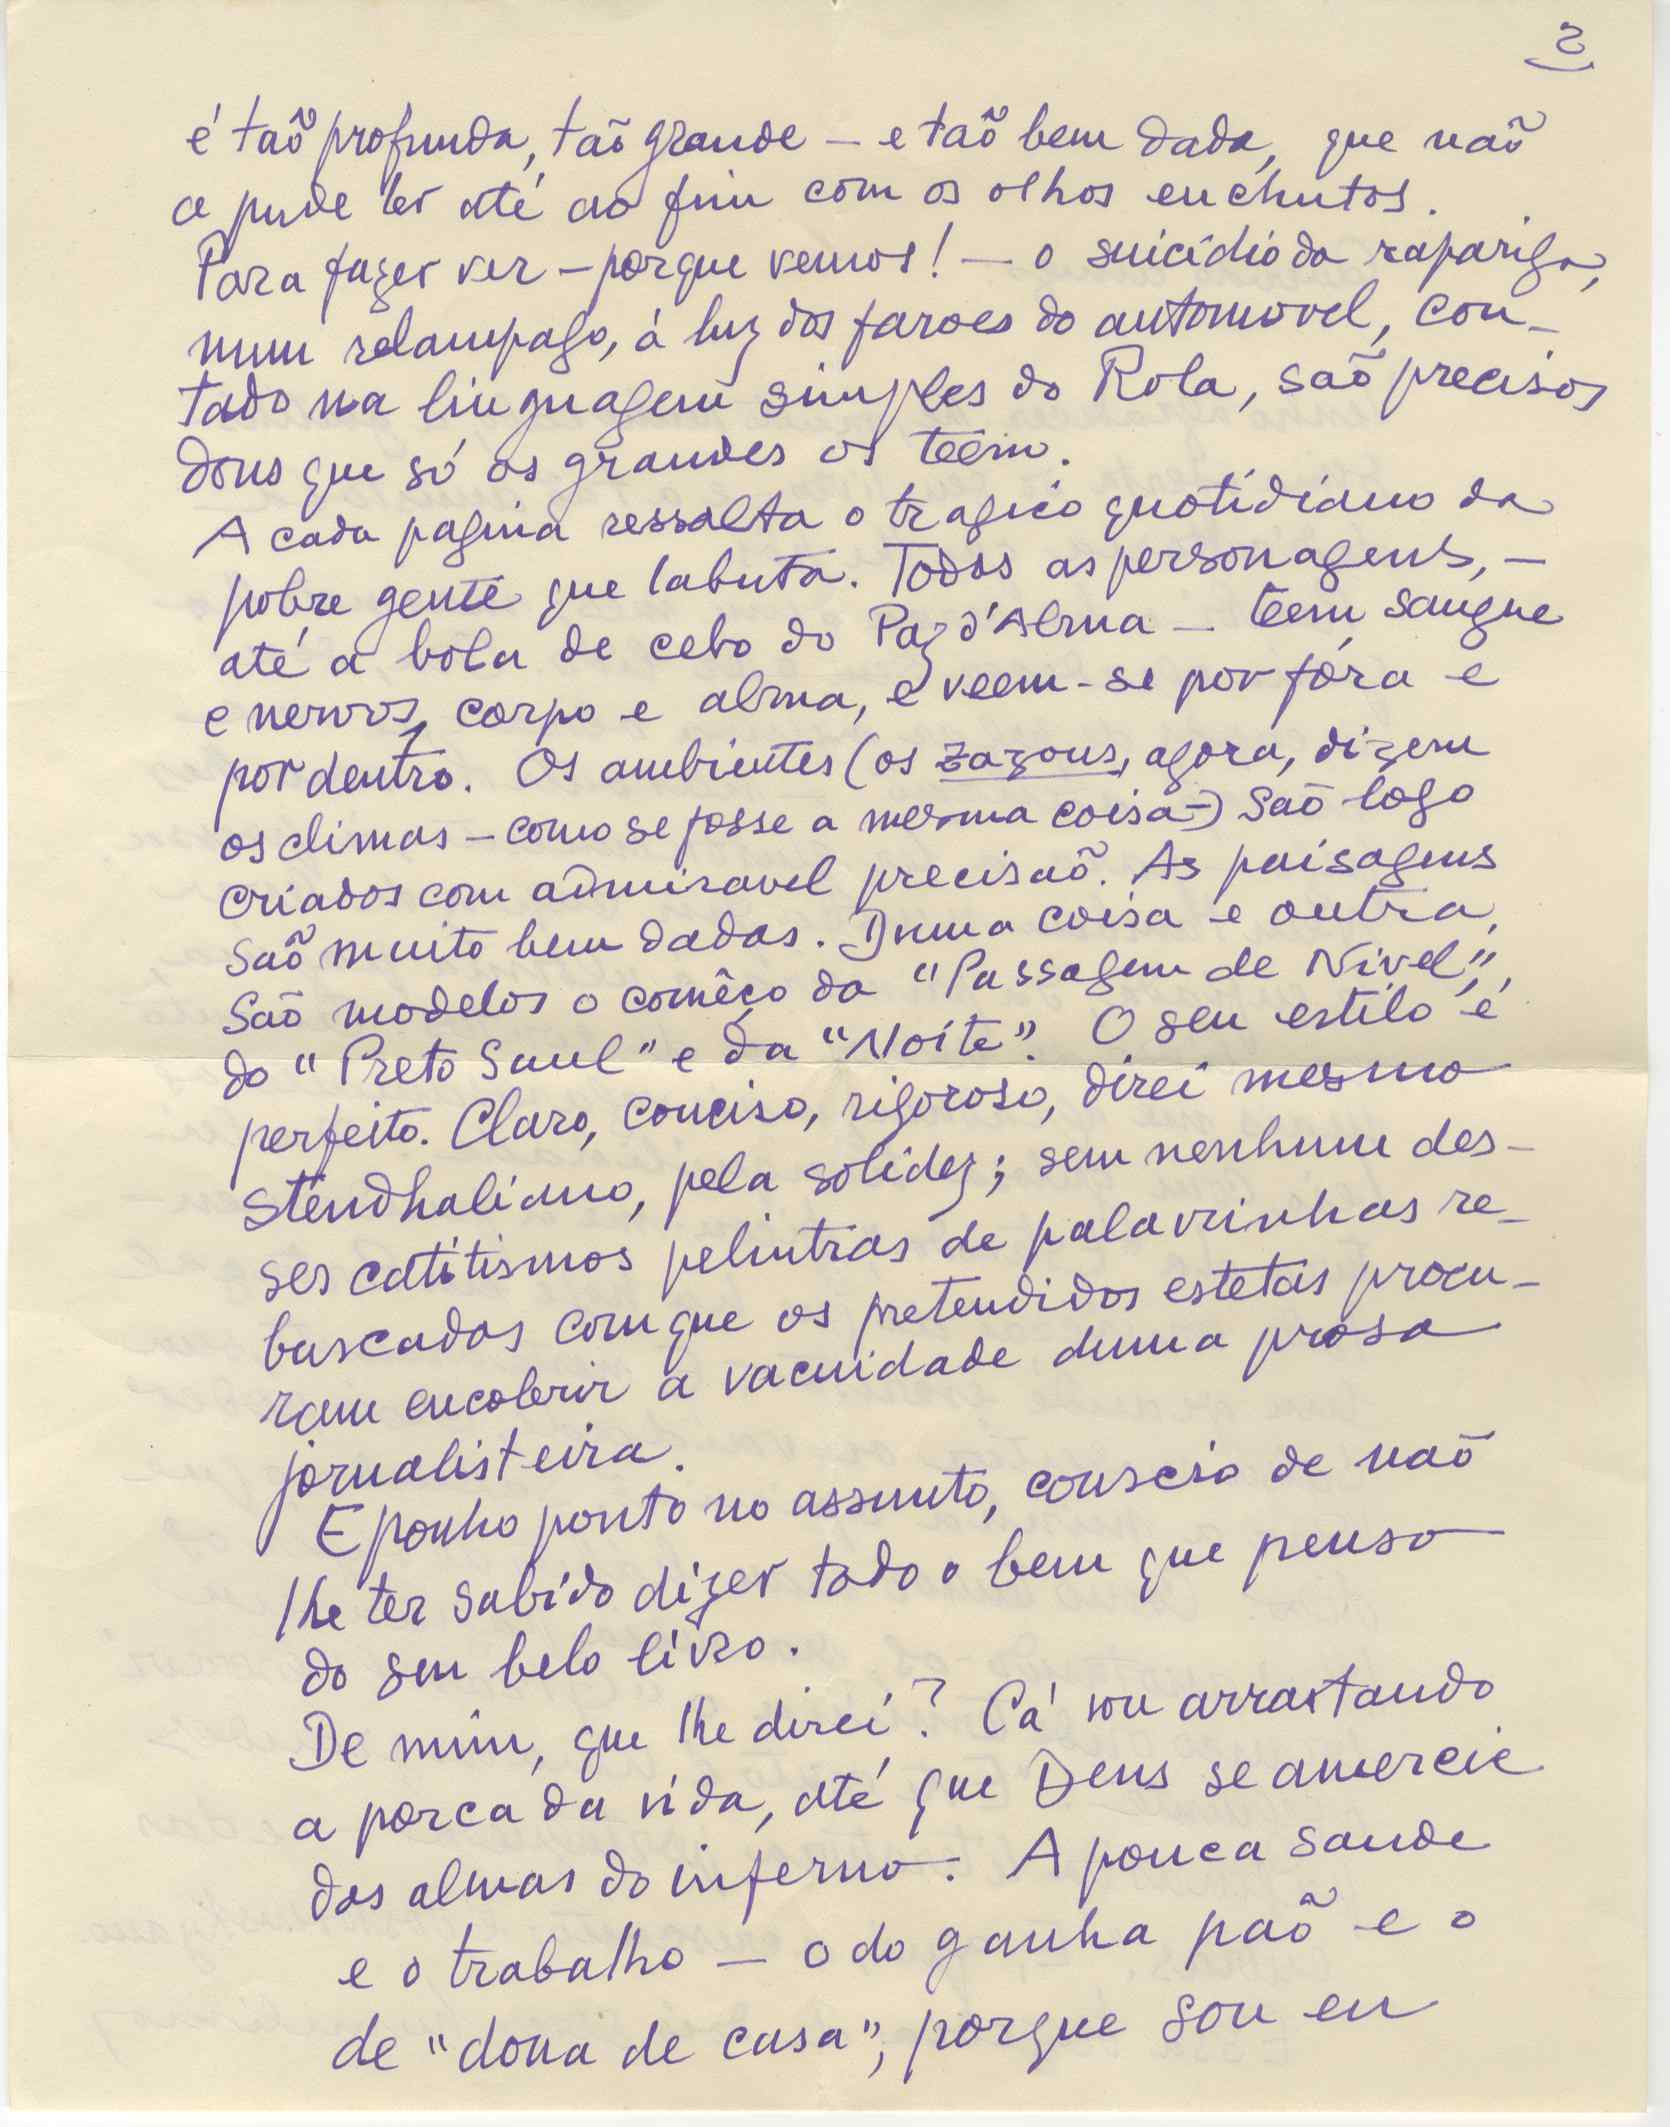 2
é tão profunda, tão grande — e tão bem dada, que não
a pude ler até ao fim com os olhos enchutos.
Para fazer ver — porque vemos! — o suicídio da rapariga,
num relampago, á luz dos faroes do automovel, con-
tado na linguagem simples do Rola, são precisos
dons que só os grandes os teem.
A cada pagina ressalta o tragico quotidiano da
pobre gente que labuta. Todas as personagens, —
até a bola de cebo do Paz d'Alma — teem sangue
e nervos, corpo e alma, e veem-se por fóra e
por dentro. Os ambientes (os zazous, agora, dizem
os climas — como se fosse a mesma coisa —) são logo
criados com admiravel precisão. As paisagens
são muito bem dadas. Duma coisa e outra,
são modelos o comêço da "Passagem de Nivel",
do "Preto Saul" e da "Noite". O seu estilo é
perfeito. Claro, conciso, rigoroso, direi mesmo
stendhaliano, pela solidez; sem nenhum des-
ses catitismos pelintras de palavrinhas re-
buscadas com que os pretendidos estetas procu-
ram encobrir a vacuidade duma prosa
jornalisteira.
E ponho ponto no assunto, conscio de não
lhe ter sabido dizer todo o bem que penso
do seu belo livro.
De mim, que lhe direi? Cá vou arrastando
a porca da vida, até que Deus se amerceie
das almas do inferno. A pouca saude
e o trabalho — o do ganha pão e o
de "dona de casa", porque sou eu